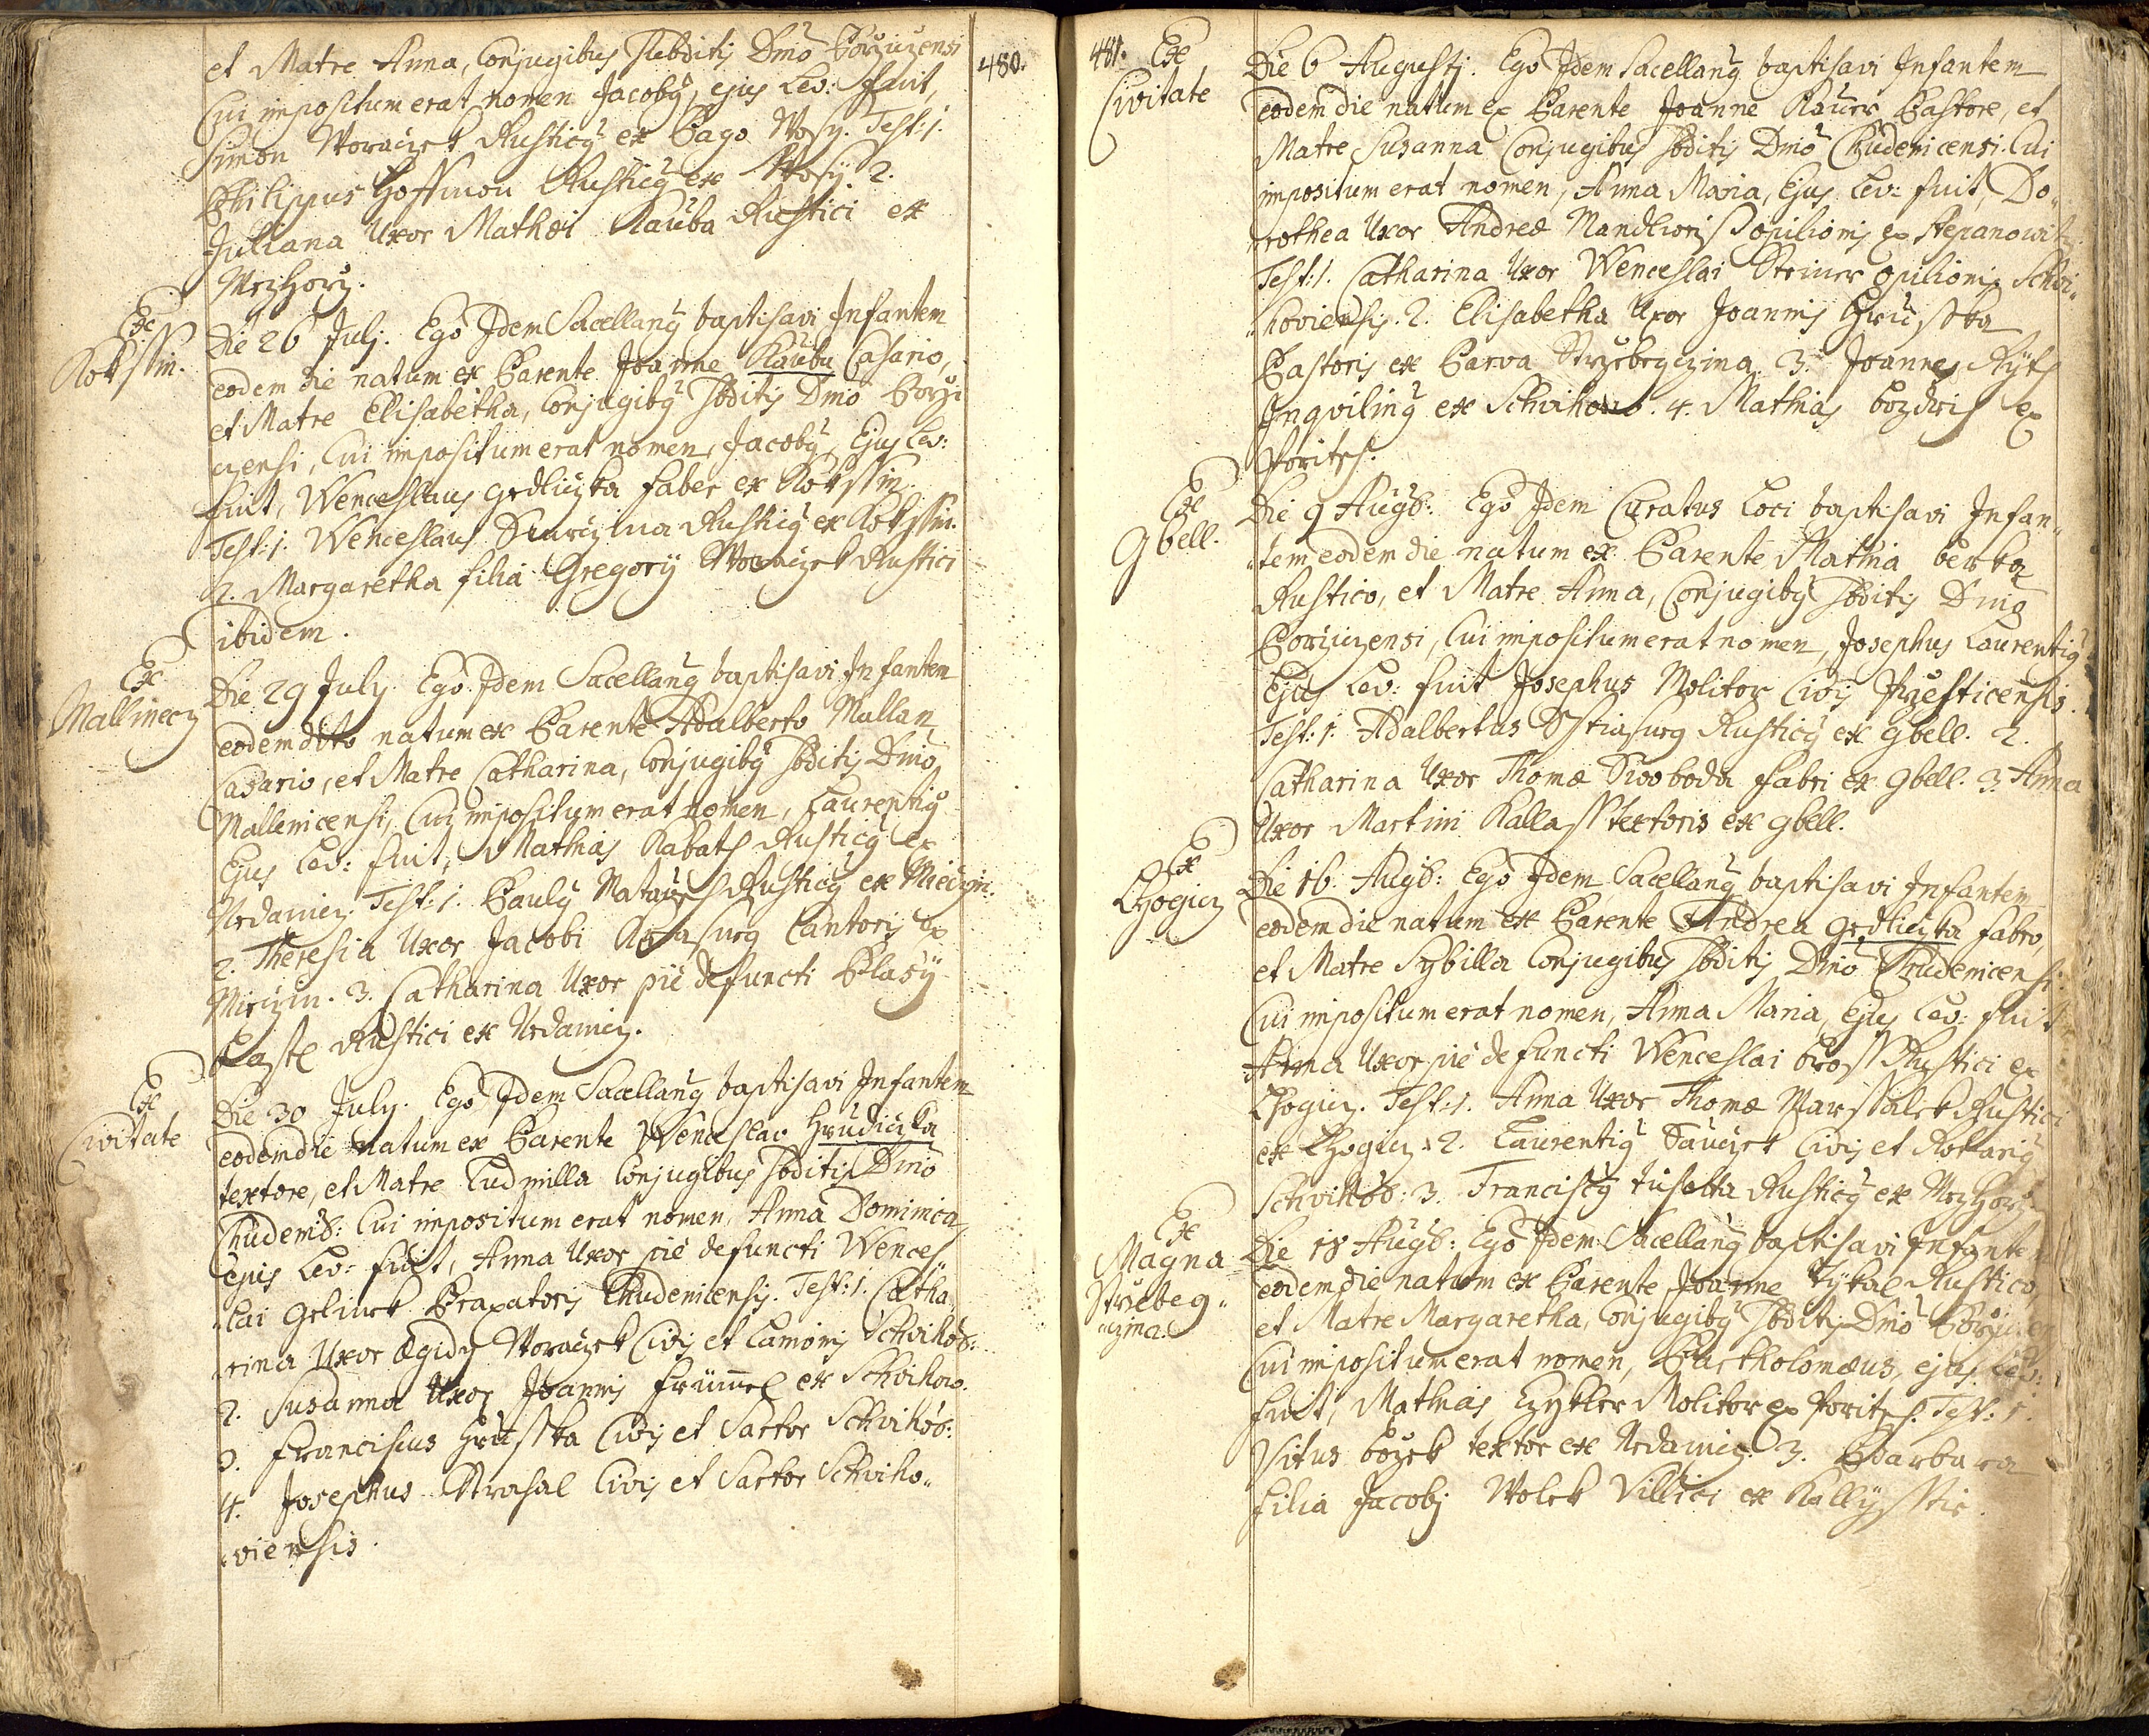 480.
et Matre Anna, Conjugibus Subditis Dmō Borzicensi
Cui impositum erat nomen Jacobg, ejus Lev: fuit,
Simon Woraczek Rusticg ex Pago Wosy. Test: 1.
Philippus Hoffmon Rusticg ex Wosy 2.
Juliana Uxor Mathæi Kauba Rustici ex
Mezhorz.
Ex
Kokssin.
Die 26 Julj. Ego Idem Sacellang baptisavi Infantem
eodem die natum ex Parente Joanne Kauba Casario,
et Matre Elisabetha, Conjugibg Sbditis Dmō Borzi
censi, Cui impositum erat nomen, Jacobg, Ejus Lev:
fuit, Wenceslaus Gedliczka faber ex Kokssin.
Test: 1. Wenceslaus Rusticg ex Kokssin.
2. Margaretha filia Gregorij Woraczek Rustici
ibidem.
Ex
Mallinecz
Die 29 July. Ego Idem Sacellang baptisavi Infantem
eodem dito natum ex Parente Adalberto Mallan
Casario, et Matre Catharina, Conjugibg Sbditis Dmō
Mallenicensi, Cui impositum erat nomen, Laurentig
Ejus Lev: fuit, Mathias Kabats Rusticg ex
Nedanicz. Test: 1. Paulg Rusticg ex Mieczin.
2. Theresia Uxor Jacobi Cantoris ex
Mieczin. 3. Catharina Uxor pié defuncti Blasÿ
Rustici ex Nedanicz.
Ex
Civitate
Die 30 July. Ego Idem Sacellang baptisavi Infantem
eodem die natum ex Parente Wenceslao Hrudiczka
textore, et Matre Ludmilla Conjugibus Sbditis Dmō
Chudenic: Cui impositum erat nomen, Anna Dominica,
Ejus Lev: fuit, Anna Uxor pié defuncti Wences
lai Gelinek Braxatoris Chudenicensis. Test: 1. Catha„
„rina Uxor Ægidÿ Woraczek Civis et Lanionis Schvihov:
2. Susanna Uxor Joannis Frümmel ex Schvihow.
3. Franciscus Hrusska Civis et Sartor Schvihov:
4. Josephus Strasal Civis et Sartor Schviho„
„viensis.
481.
Ex
Civitate
Die 6 Augusti. Ego Idem Sacellang baptisavi Infantem
eodem die natum ex Parente Joanne Kauer Pastore, et
Matre Susanna Conjugibus Sbditis Dmō Chudenicensi. Cui
impositum erat nomen, Anna Maria, Ejus Lev: fuit, Do„
„rothea Uxor Andreæ Opilionis ex Stepanowitz.
Test: 1. Catharina Uxor Wenceslai Steiner opilionis Schvi„
„hoviensis. 2. Elisabetha Uxor Joannis Hrusska
Pastoris ex Parva Strzebeyczina. 3. Joannes
Inqviling ex Schvihow. 4. Mathias ex
Poritz.
Ex
Gbell.
Die 9 Augs: Ego Idem Curatus Loci baptisavi Infan„
„tem eodem die natum ex Parente Mathia berka
Rustico, et Matre Anna, Conjugibg Sbditis Dmō
Borzicensi, Cui impositum erat nomen, Josephus Laurentig
Ejus Lev: fuit Josephus Molitor Civis Przesticensis.
Test: 1. Adalbertus Rusticg ex Gbell. 2.
Catharina Uxor Thomæ Swoboda fabri ex Gbell. 3. Anna
Uxor Martini Kallass textoris ex Gbell.
Ex
Die 16. Augs: Ego Idem Sacellang baptisavi Infantem
eodem die natum ex Parente Andrea Gedliczka fabro,
et Matre Sybilla Conjugibus Sbditis Dmō Chudenicensi:
Cui impositum erat nomen, Anna Maria, Ejus Lev: fuit
Anna Uxor pié defuncti Wenceslai Bross Rustici ex
Test: 1. Anna Uxor Thomæ Marssalek Rustici
ex 2. Laurentig Civis et
Schvihov: 3. Franciscg Rusticg ex Mezhorz.
Ex
Magna
Strzebeg„
„czina
Die 18 Augs: Ego Idem Sacellang baptisavi Infantem
eodem die natum ex Parente Joanne Tykal Rustico,
et Matre Margaretha, Conjugibg Sbditis Dmō
Cui impositum erat nomen, Bartholomæus, ejus Lev:
fuit, Mathias Molitor ex Poritz. Test: 1.
Vitus textor ex Nedanicz. 3. Barbara
filia Jacobj Wolek Villici ex